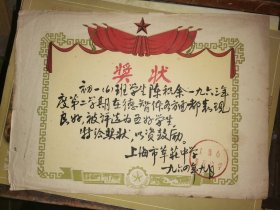 奖状
初一(6)班学生陈秋余一九六三年
度第二学期在德智体各方面都表现
良好，被评选为五好学生
特给奖状，以资鼓励
上海市莘莊中学
一九六四年九月